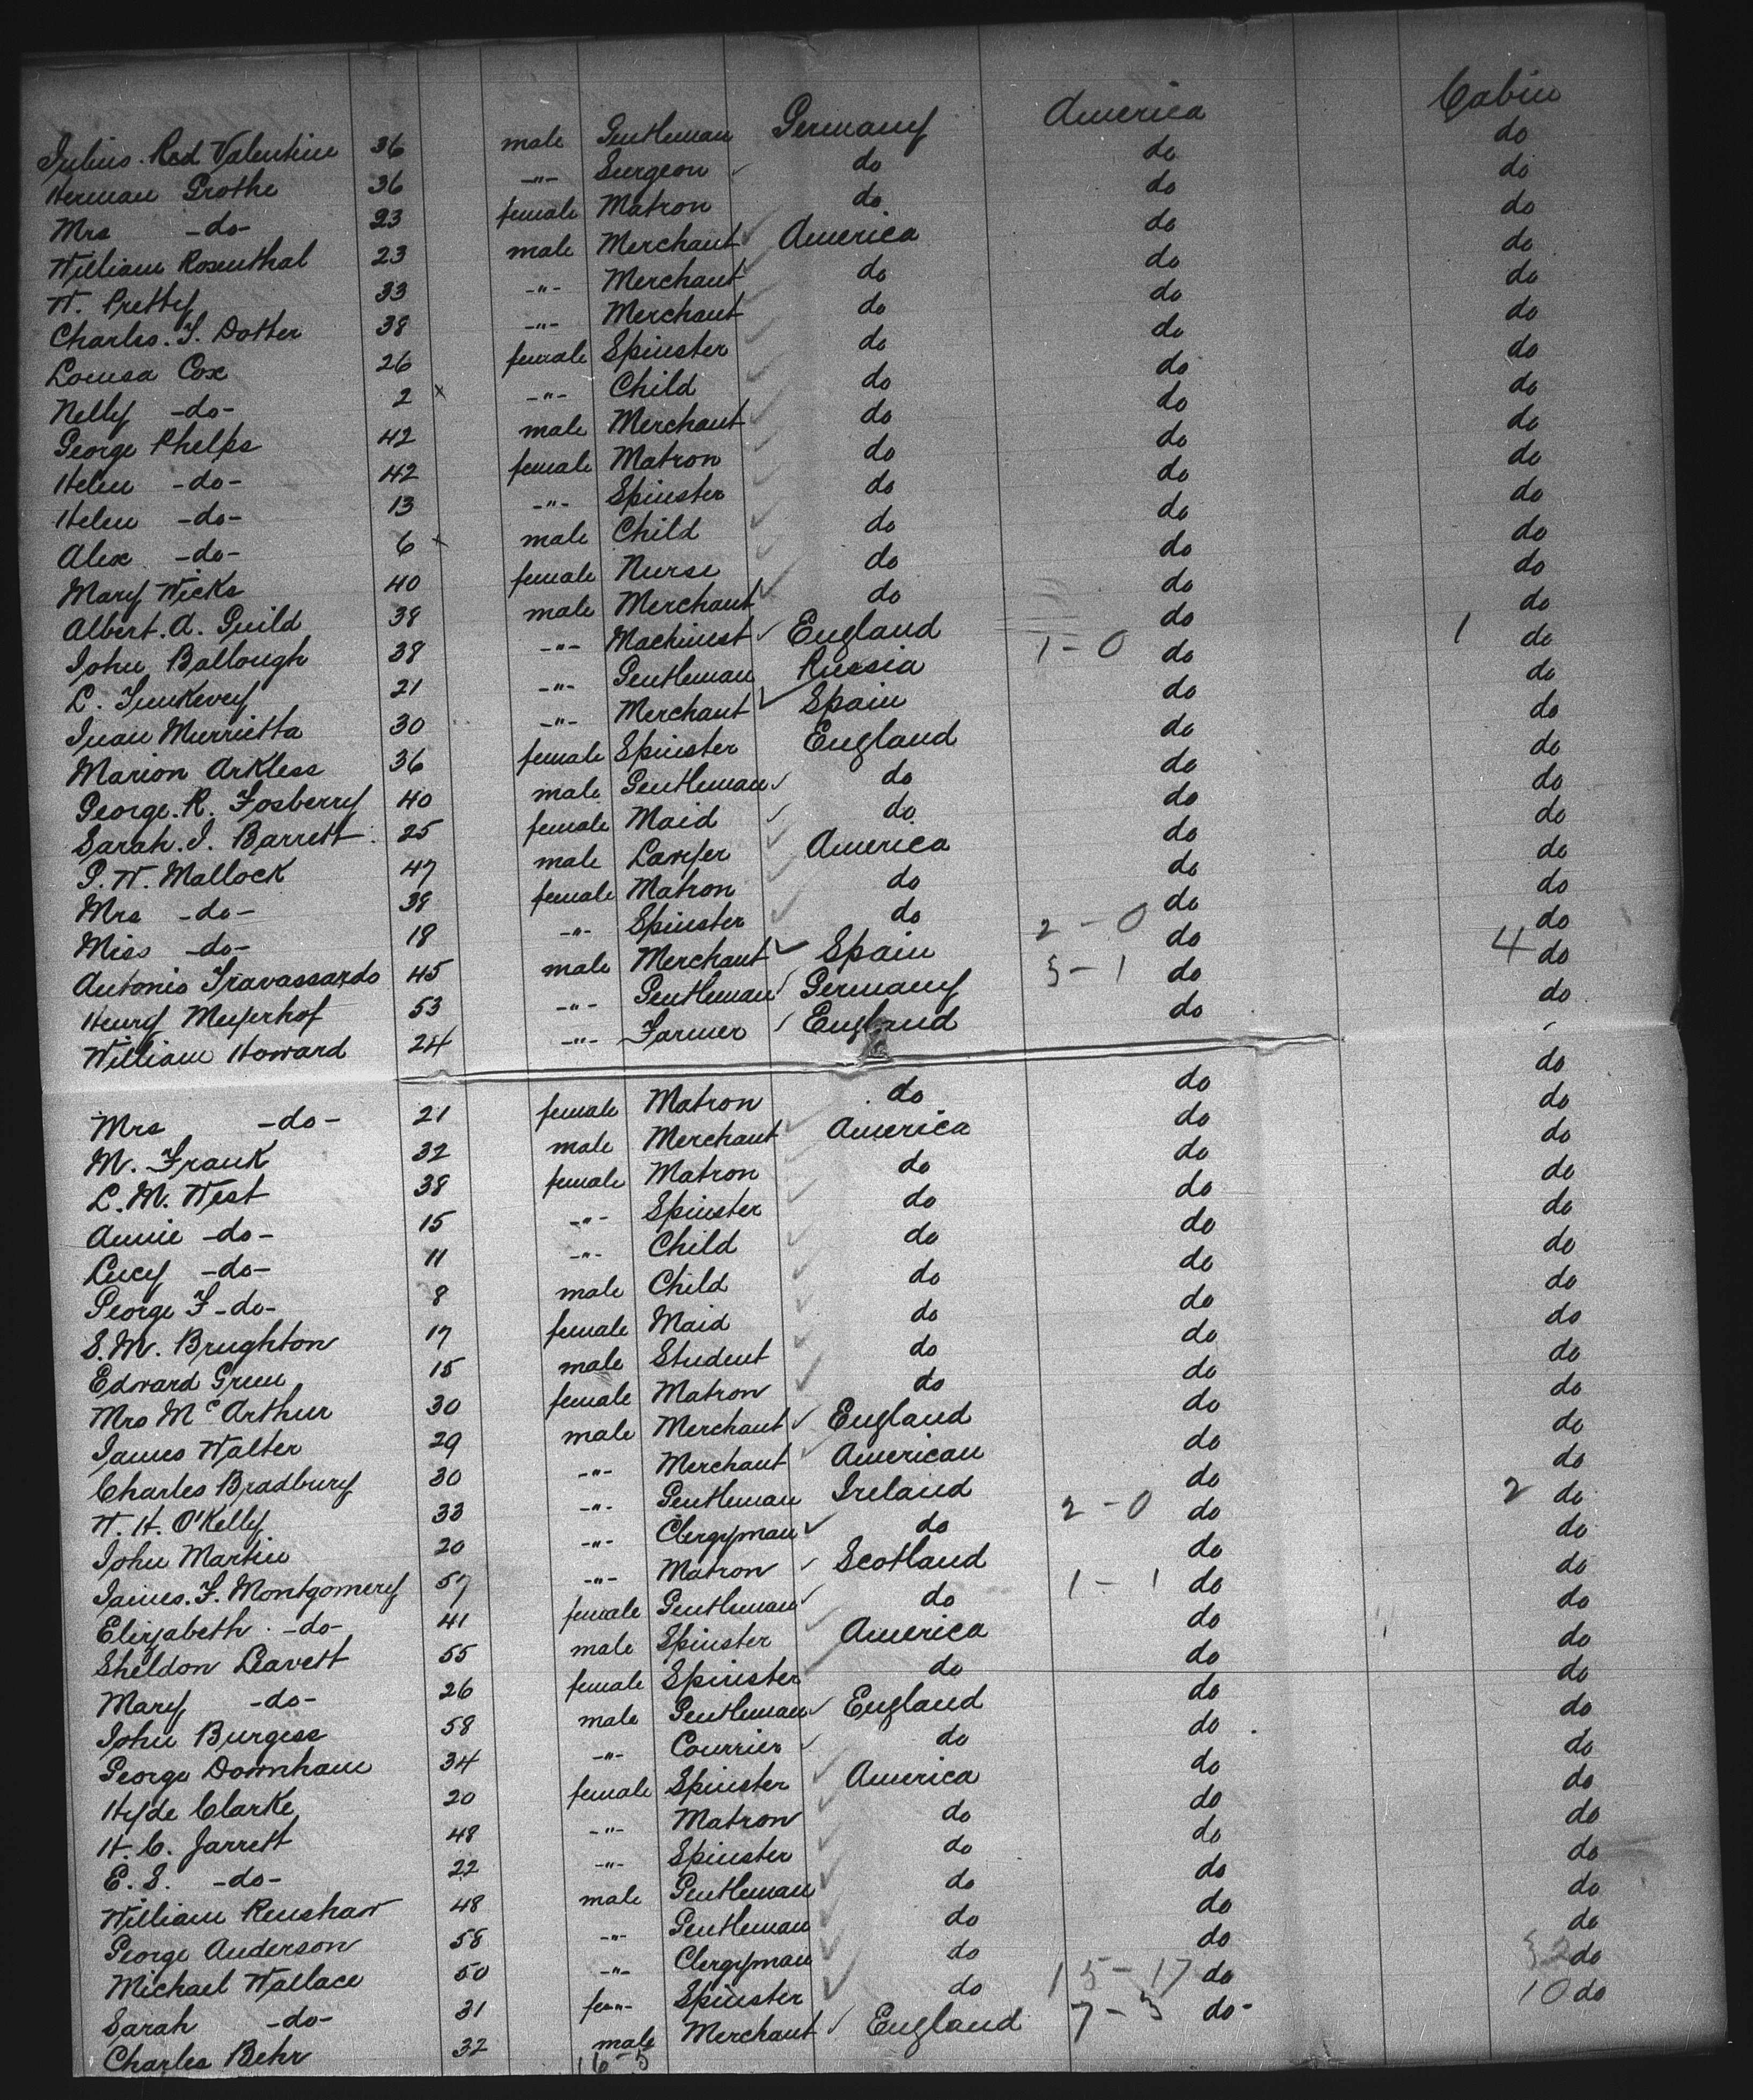 Julius Rud Valentin 36 male Gentleman Germany America Cabin
Herman Grothe 36 -"- Surgeon do do do
Mrs -do- 23 female Matron do do do
William Rosenthal 23 male Merchant America do do
W. Pretty 33 -"- Merchant do do do
Charles. T. Dotter 38 -"- Merchant do do do
Louisa Cox 26 female Spinster do do do
Nelly -do- 2 x -"- Child do do do
George Phelps 42 male Merchant do do do
Helen -do- 42 female Matron do do do
Helen -do- 13 -"- Spinster do do do
Alex -do- 6 x male Child do do do
Mary Wicks 40 female Nurse do do do
Albert. A. Guild 38 male Merchant do do do
John Ballough 38 -"- Machinest England 1-0 do 1 do
L. 21 -"- Gentleman Russia do do
Juan Murrietta 30 -"- Merchant Spain do do
Marion Arkless 36 female Spinster England do do
George. R. Fosberry 40 male Gentleman do do do
Sarah. J. Barrett 25 female Maid do do do
P. W. Mallock 47 male Lawyer America do do
Mrs -do- 38 female Matron do do do
Miss -do- 18 -"- Spinster do 2-0 do do
Antonio 45 male Merchant Spain 3-1 do 4 do
Henry Meyerhof 53 -"- Gentleman Germany do do
William Howard 24 -"- Farmer England do
Mrs -do- 21 female Matron do do do
M. Frank 32 male Merchant America do do
L. M. West 38 female Matron do do do
Annie -do- 15 -"- Spinster do do do
Lucy -do- 11 -"- Child do do do
George F -do- 8 male Child do do do
S. M. Brughton 17 female Maid do do do
Edward Gruu 15 male Student do do do
Mrs Mc Arthur 30 female Matron do do do
James Walter 29 male Merchant England do do
Charles Bradbury 30 -"- Merchant American do do
W. H. O'Kelly 33 -"- Gentleman Ireland 2-0 do 2 do
John Martin 20 -"- Clergyman do do do
James. F. Montgomery 57 -"- Matron Scotland 1-1 do do
Elizabeth -do- 41 female Gentleman do do do
Sheldon Leavett 55 male Spinster America do do
Mary -do- 26 female Spinster do do do
John Burgess 58 male Gentleman England do do
George Downham 34 -"- Courrier do do do
Hyde Clarke 20 female Spinster America do do
H. C. Jarrett 48 -"- Matron do do do
E. S. -do- 22 -"- Spinster do do do
William Renshaw 48 male Gentleman do do do
George Anderson 58 -"- Gentleman do do do
Michael Wallace 50 -"- Clergyman do 15-17 do 32 do
Sarah -do- 31 fem- Spinster do 7-3 do- 10 do
Charles Behr 32 male Merchant England
16-5